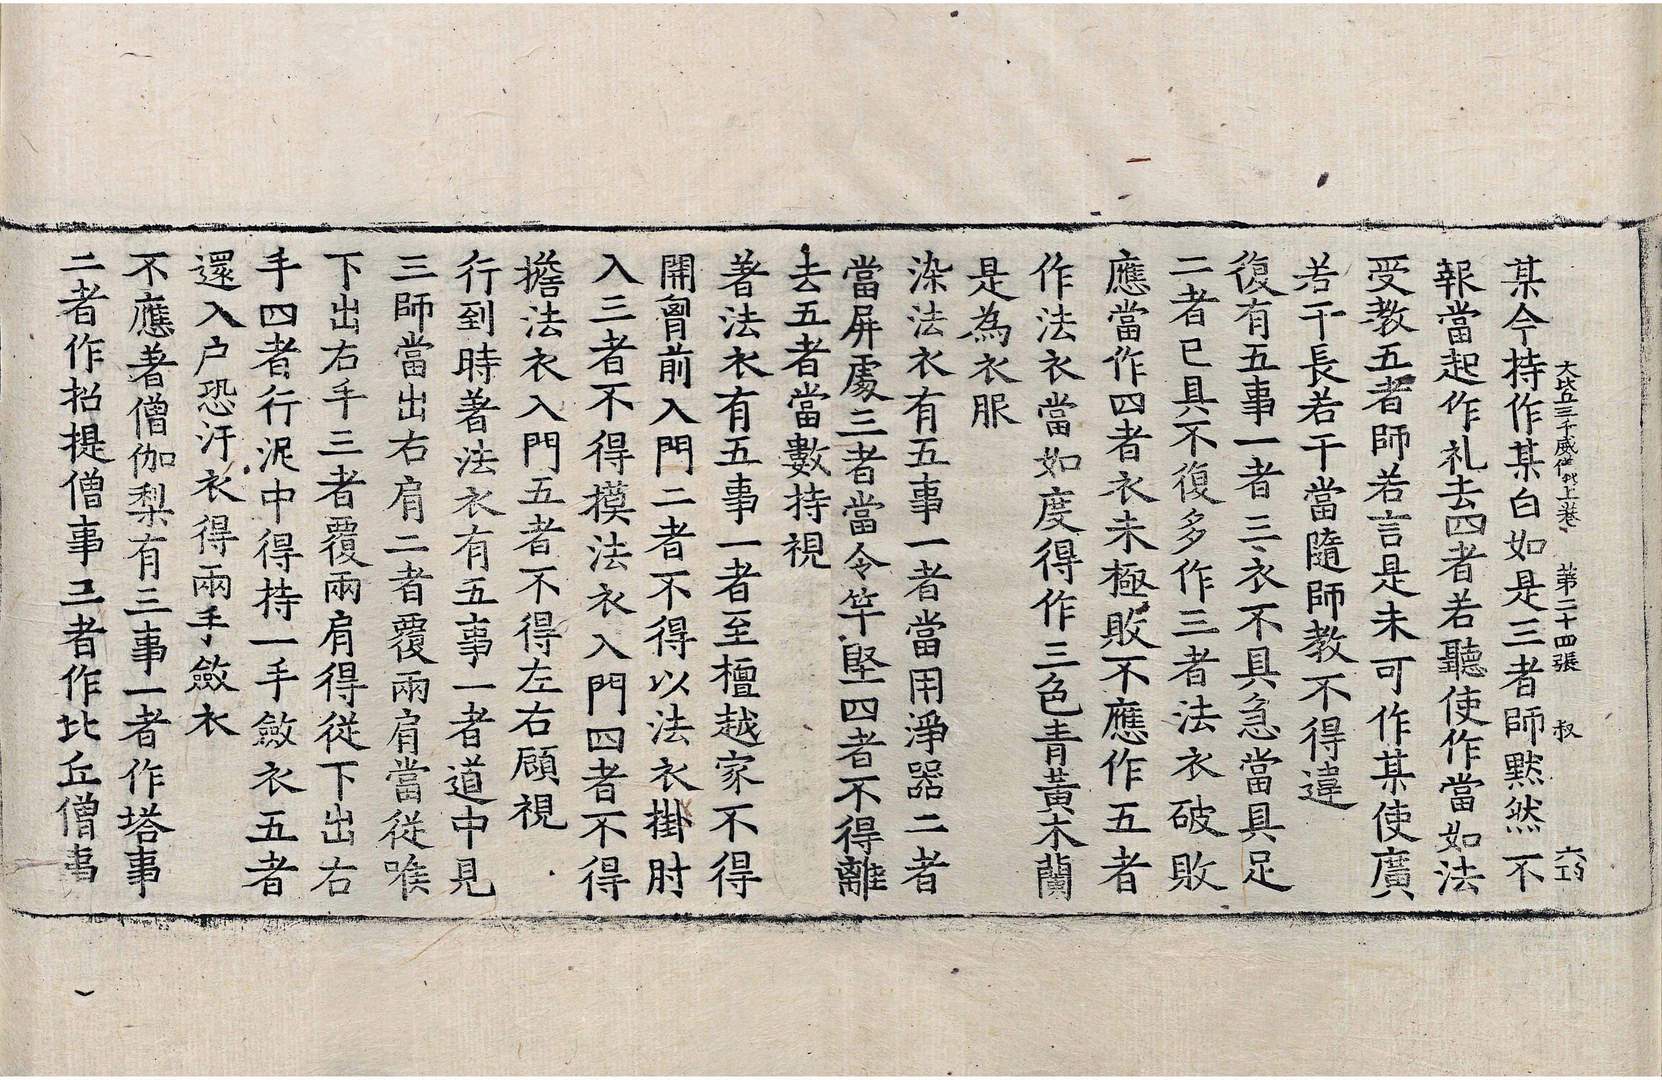 大比丘三千威儀經上卷 第二十四張 叔
某今持作某白如是三者師默然不
報當起作礼去四者若聽使作當如法
受教五者師若言是未可作某使廣
若干長若干當隨師教不得違
復有五事一者三衣不具急當具足
二者已具不復多作三者法衣破敗
應當作四者衣未極敗不應作五者
作法衣當如度得作三色青黃木蘭
是為衣服
染法衣有五事一者當用淨器二者
當屏處三者當令竿堅四者不得離
去五者當數持視
著法衣有五事一者至檀越家不得
開胷前入門二者不得以法衣掛肘
入三者不得摸法衣入門四者不得
擔法衣入門五者不得左右顧視
行到時著法衣有五事一者道中見
三師當出右肩二者覆兩肩當從喉
下出右手三者覆兩肩得從下出右
手四者行泥中得持一手斂衣五者
還入户恐汙衣得兩手斂衣
不應著僧伽梨有三事一者作塔事
二者作招提僧事三者作比丘僧事